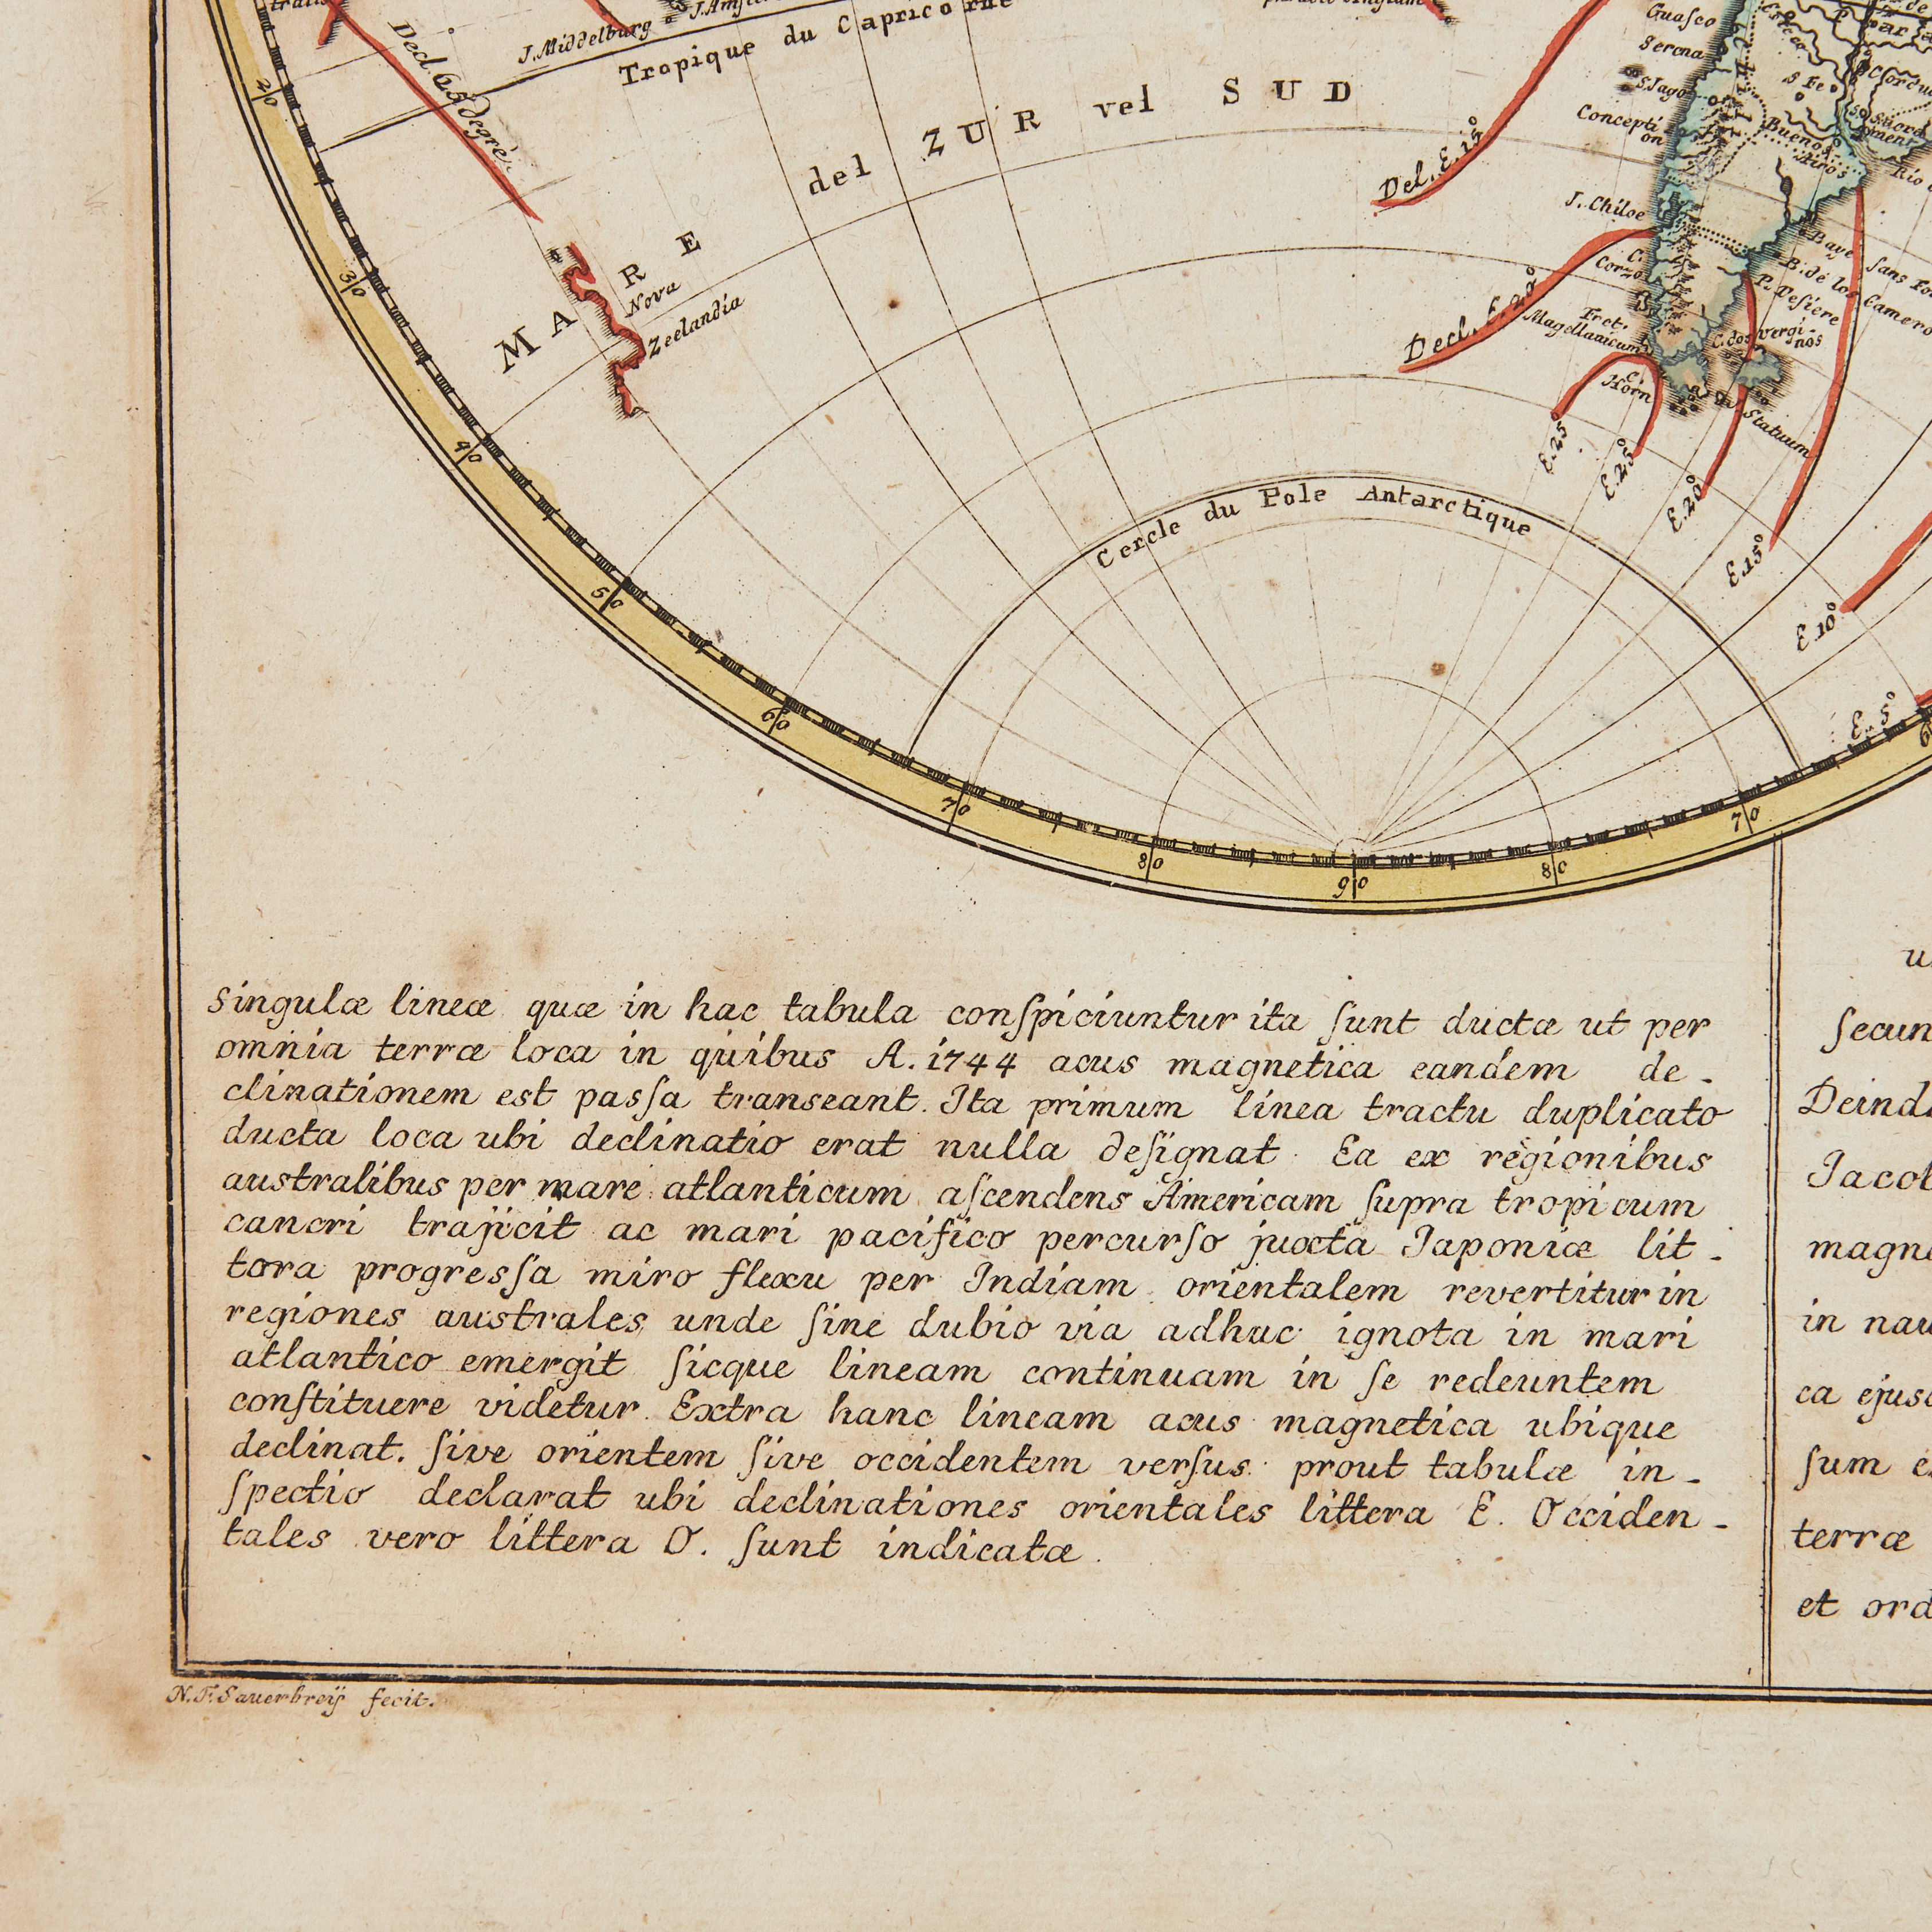 J. Middelburg
Tropique du Capricorne
Decl. 6.5 degrè
MARE del ZUR vel SUD
Nova
Zeelandia
Del. E. 15°
Decl. E. 20°
Guaſco
Serena
S. Jago
Concepti
on
J. Chiloe
C.
Corzo
Fret.
Magellanicum
C.
Horn
Statuum
S Fe
Buenos
Airos
Baye ſans Fo
B. de los Camero
P. Deſiere
C. dos vergi-
nos
E. 25°
E. 25°
E. 20°
E. 15°
E. 10°
E. 5°
Cercle du Pole Antarctique
20
30
40
50
60
70
80
90
80
70
Singulæ lineæ quæ in hac tabula conſpiciuntur ita ſunt ductæ ut per
omnia terræ loca in quibus A. 1744 acus magnetica eandem de-
clinationem est pasſa transeant. Ita primum linea tractu duplicato
ducta loca ubi declinatio erat nulla deſignat. Ea ex regionibus
australibus per mare atlanticum aſcendens Americam ſupra tropicum
cancri trajicit ac mari pacifico percurſo juxta Japoniæ lit-
tora progresſa miro flexu per Indiam orientalem revertitur in
regiones australes unde ſine dubio via adhuc ignota in mari
atlantico emergit ſicque lineam continuam in ſe redeuntem
conſtituere videtur. Extra hanc lineam acus magnetica ubique
declinat. ſive orientem ſive occidentem verſus prout tabulæ in-
ſpectio declarat ubi declinationes orientales littera E. Occiden-
tales vero littera O. ſunt indicatæ.
ſecun
Deind
Jacob
magne
in nau
ca ejusd
ſum e
terræ
et ord
N. F. Sauerbreÿ fecit.